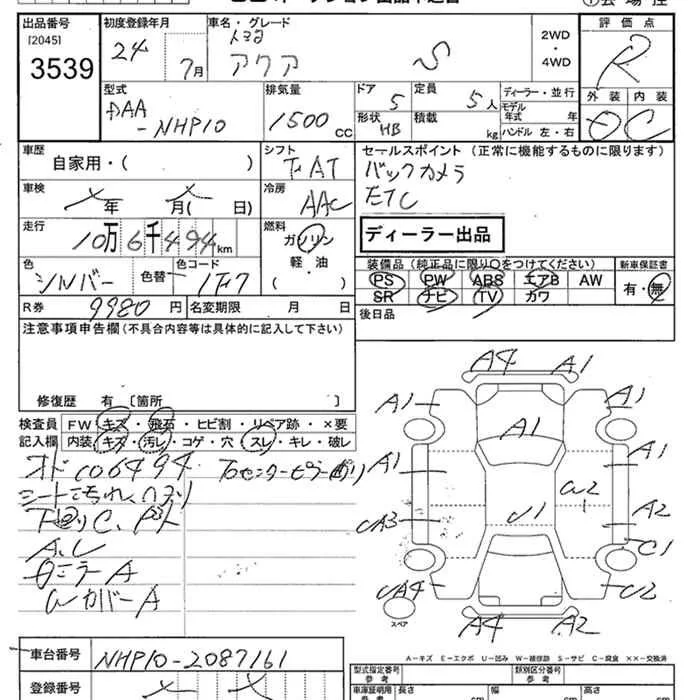 出品番号
[2045]
3539
初度登録年月
24 7月
車名・グレード
トヨタ
アクア S
2WD
・
4WD
評価点
R
外装 内装
C
型式
DAA
-NHP10
排気量
1500 cc
ドア
5
定員
5人
形状
HB
積載
kg
ディーラー・並行
モデル
年式 年
ハンドル 左・右
車歴
自家用・( )
シフト
AT
セールスポイント (正常に機能するものに限ります)
バックカメラ
ETC
車検
年 月( 日)
冷房
AAC
走行
10万6千494km
燃料
ガソリン
軽・油
( ・ )
ディーラー出品
色
シルバー
色替
色コード
1F7
装備品 (純正品に限り○をつけてください)
PS PW ABS エアB AW
SR ナビ TV カワ
新車保証書
有・無
R券 9980 円
名変期限 月 日
後日品
注意事項申告欄(不具合内容等は具体的に記入して下さい)
修復歴 有 〔箇所 〕
検査員
記入欄
FW キズ・飛石・ヒビ割・リペア跡・×要
内装 キズ・汚レ・コゲ・穴・スレ・キレ・破レ
シート汚れ
A.U
ミラーA
カバーA
A4 A1
A1 A1
A1
A1 A1
U2
A3 U1 A2
C1
A4 U2
A4 A2
スペア
A-キズ E-エクボ U-凹み W-補修跡 S-サビ C-腐食 ××-交換済
車台番号
NHP10-2087161
登録番号
型式指定番号
類別区分番号
車庫証明用
参考
長さ
cm
幅
cm
高さ
cm